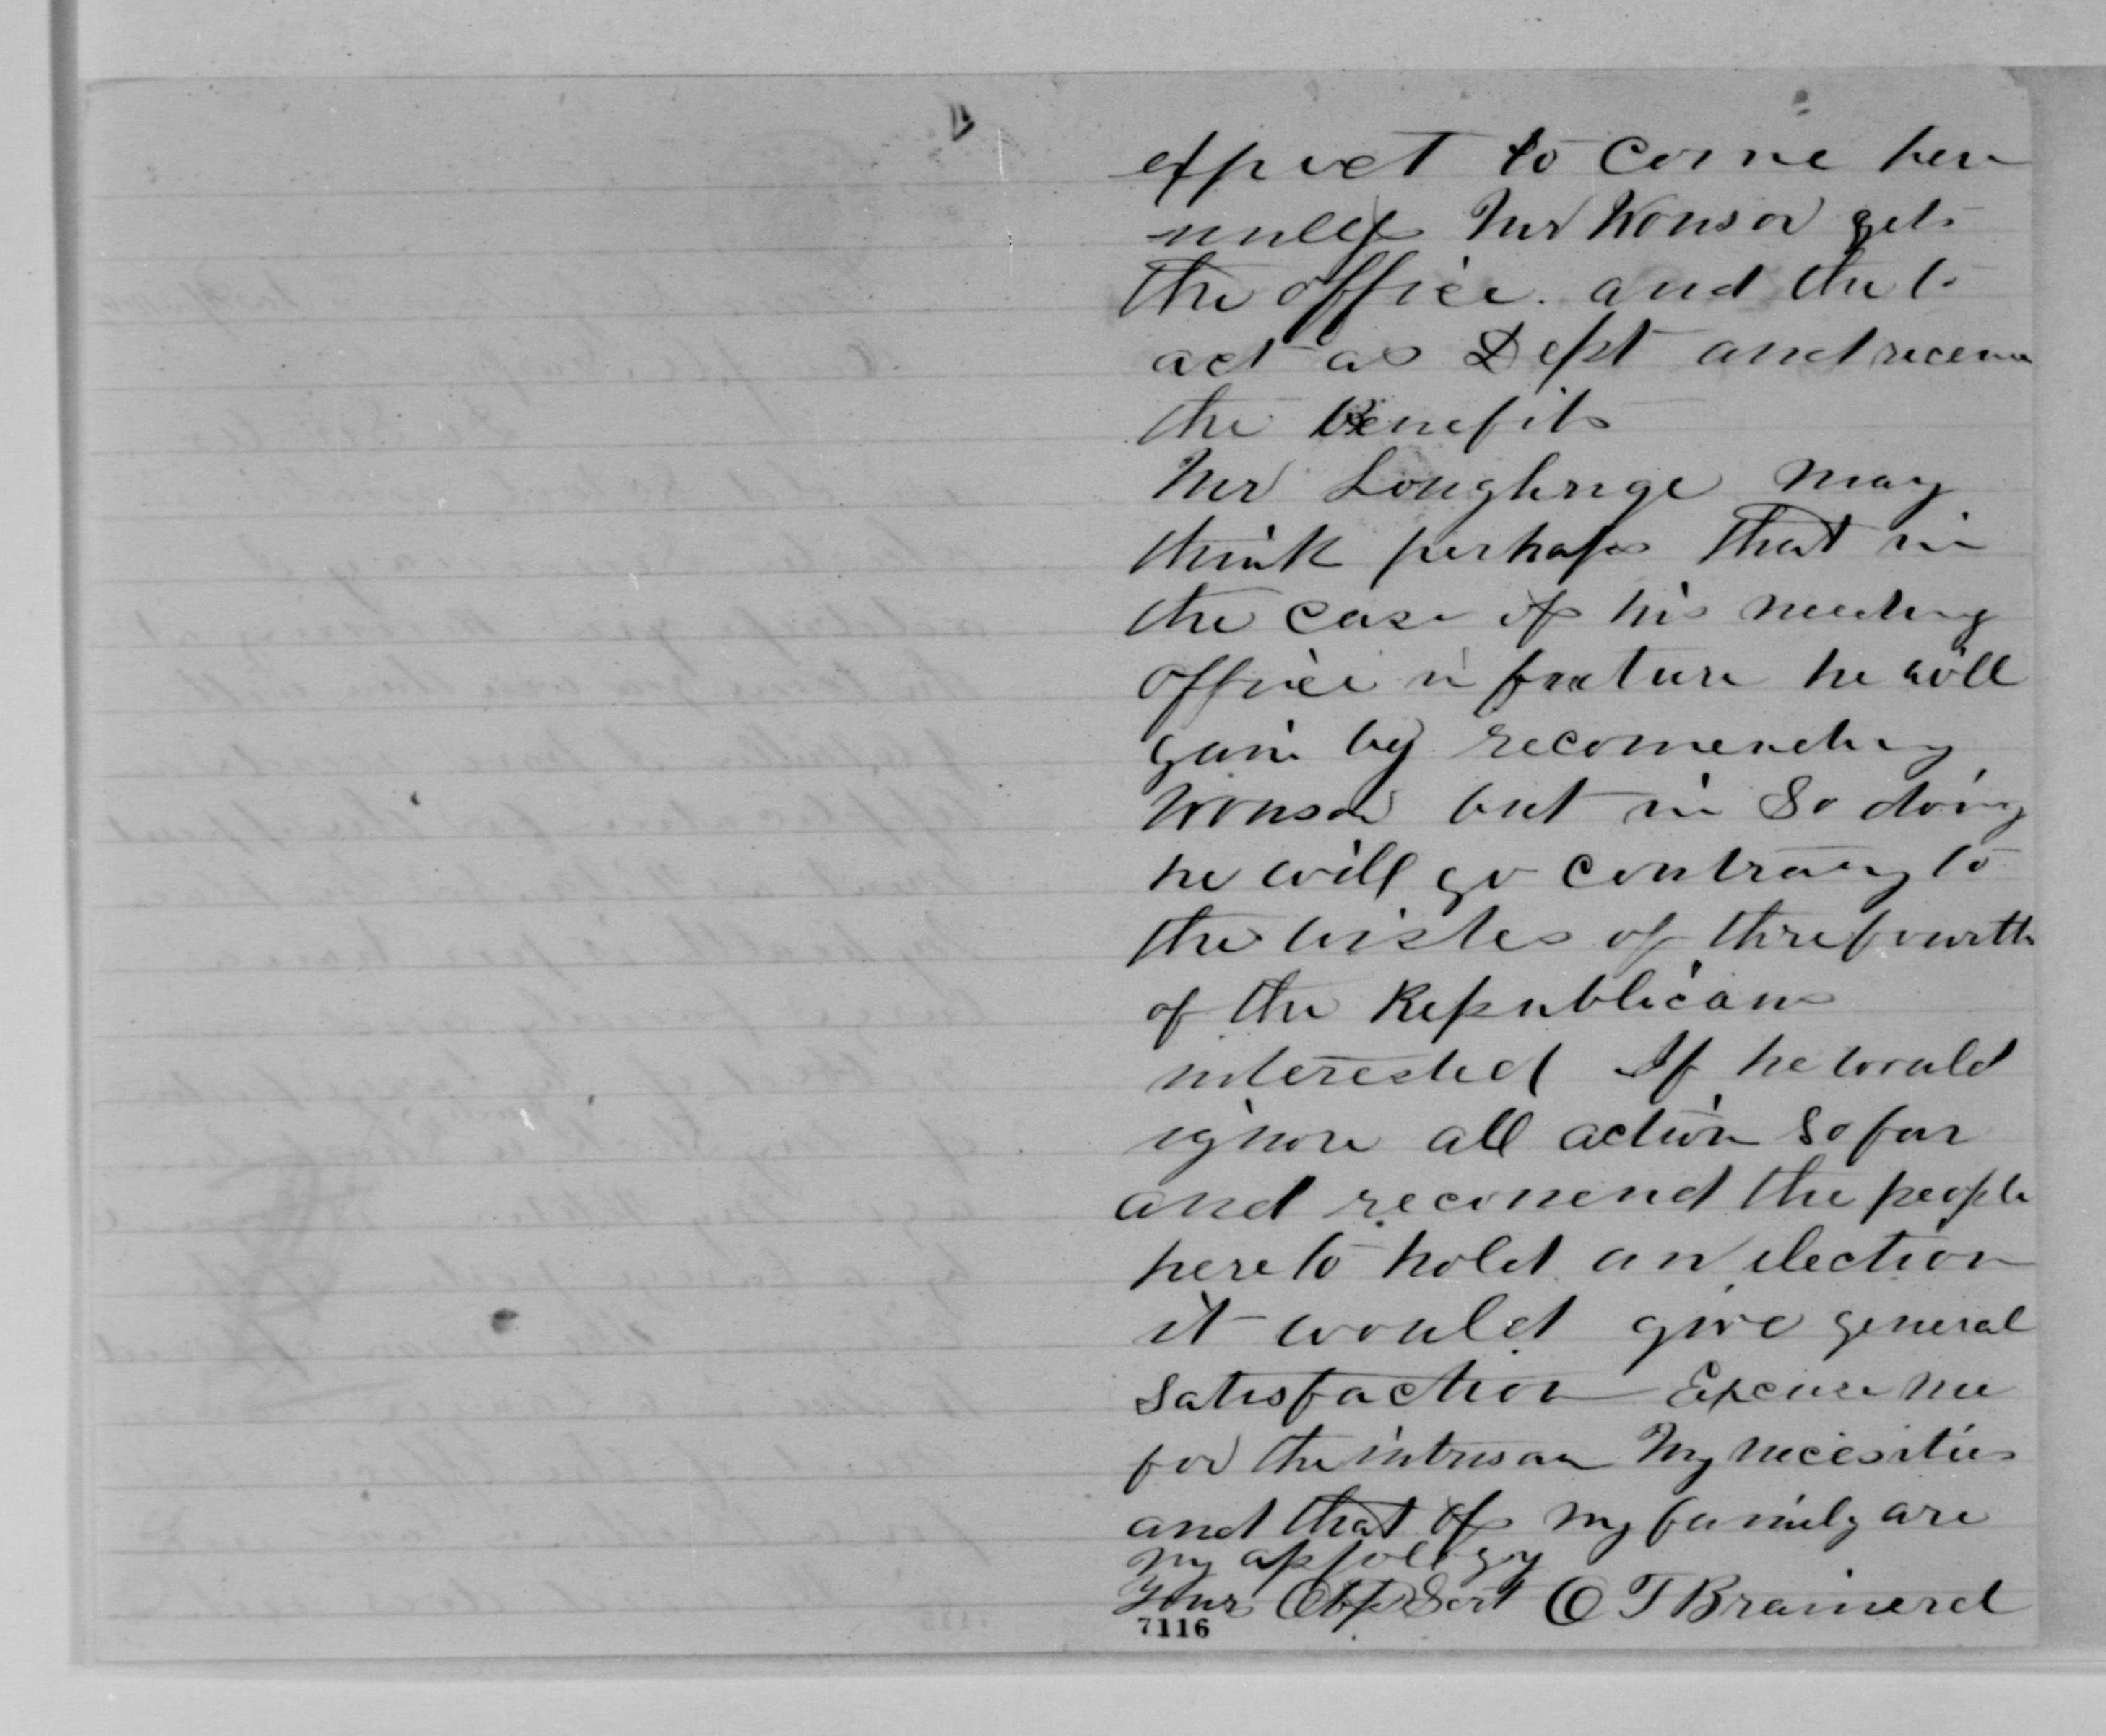 expect to come here
unless Mr Wonsor gets
the office. and the to
act as Dept and receive
the Benefits
Mr Loughrige may
think perhaps that in
the case of his needing
office in future he will
gain by recomending
Wonsor but in So doing
he will go contrary to
the wishes of threfourth
of the Republicans
interested If he would
ignore all action So far
and reconend the people
here to hold an election
it would give general
Satisfaction Excuse me
for the intrusion My necesities
and that of my family are
my appology
Yours Obt Sert O T Brainerd
7116